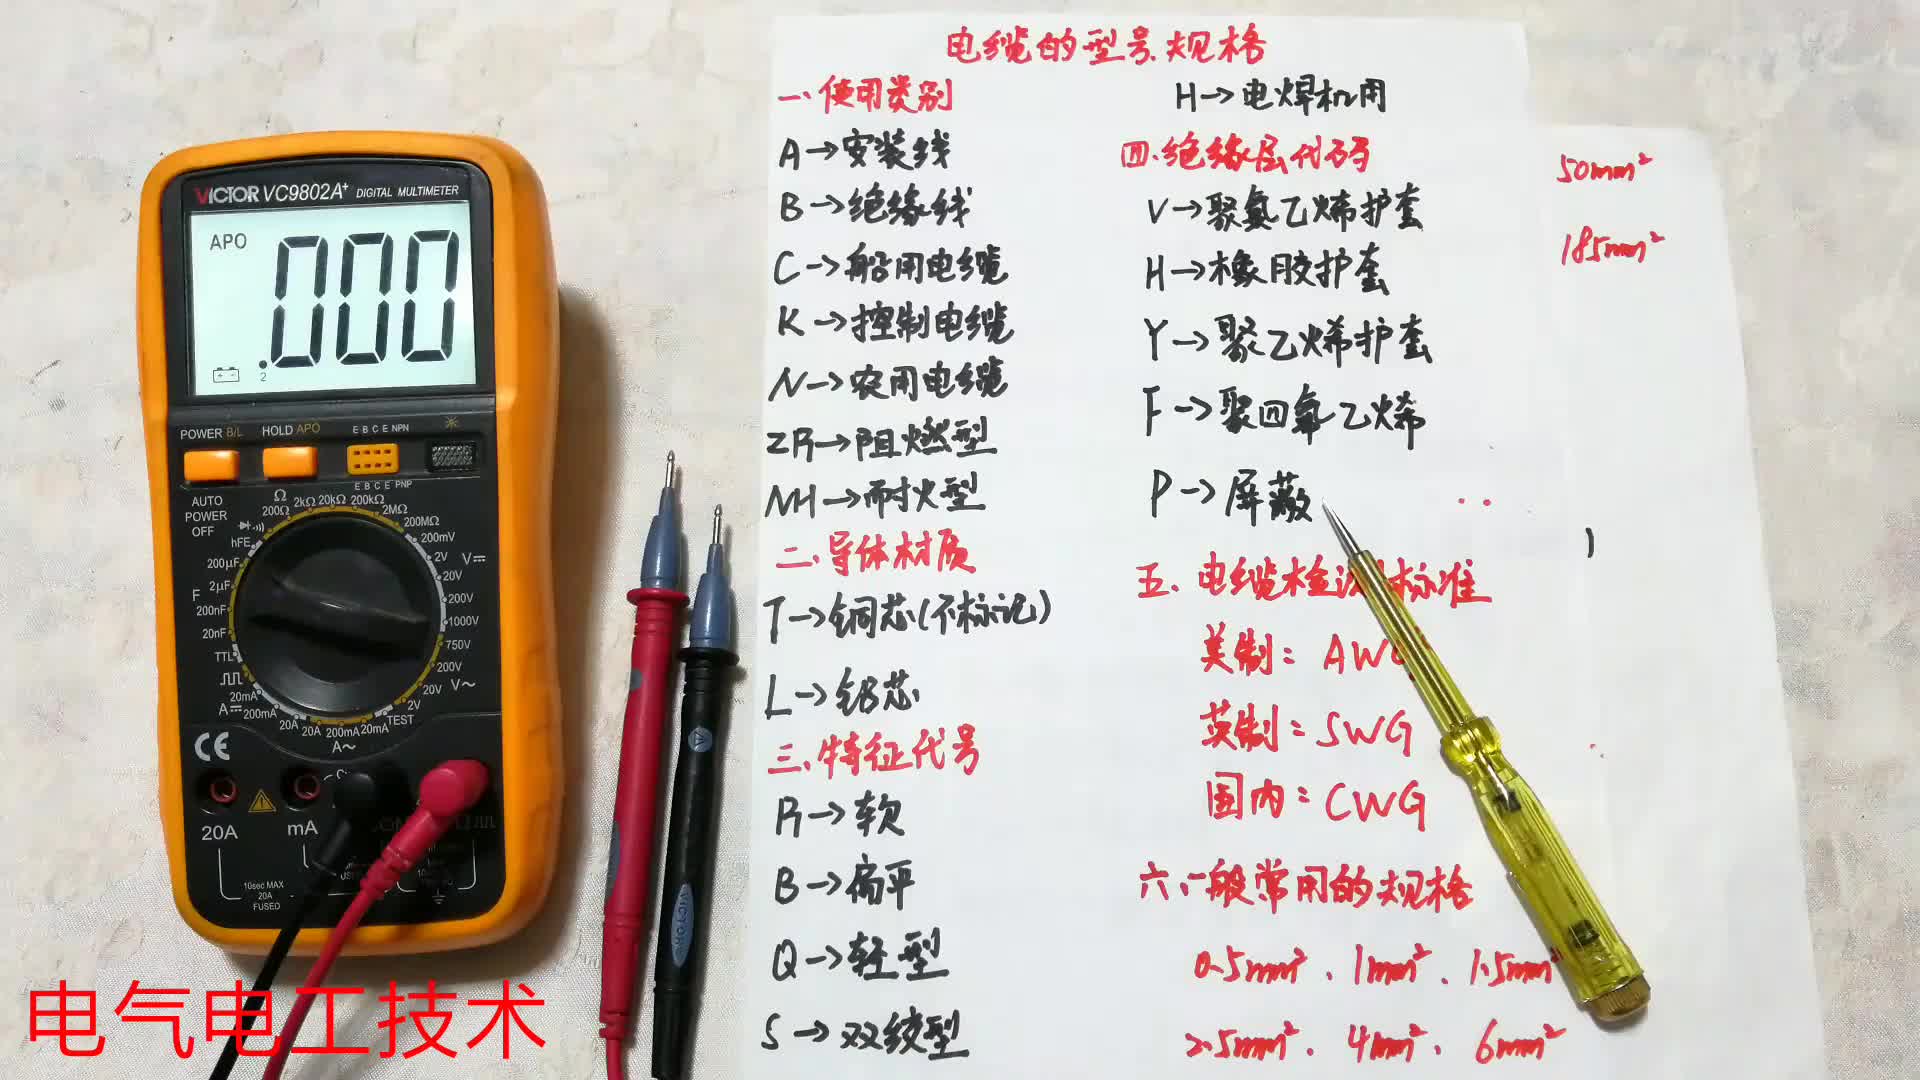 VICTOR VC9802A+ DIGITAL MULTIMETER
APO
.000
2
POWER B/L
HOLD APO
E B C E NPN
E B C E PNP
AUTO
POWER
OFF
Ω
200Ω
2kΩ
20kΩ
200kΩ
2MΩ
200MΩ
hFE
200mV
2V
V
20V
200V
1000V
750V
200V
V~
20V
2V
TEST
200μF
2μF
F
200nF
20nF
TTL
20mA
A
200mA
20A
20A
200mA
20mA
A~
CE
20A
mA
10sec MAX
20A
FUSED
VICTOR
电缆的型号规格
一、使用类别
A→安装线
B→绝缘线
C→船用电缆
K→控制电缆
N→农用电缆
ZR→阻燃型
NH→耐火型
二、导体材质
T→铜芯(不标记)
L→铝芯
三、特征代号
R→软
B→扁平
Q→轻型
S→双绞型
H→电焊机用
四、绝缘层代码
V→聚氯乙烯护套
H→橡胶护套
Y→聚乙烯护套
F→聚四氟乙烯
P→屏蔽
五、电缆检测标准
美制：AWG
英制：SWG
国内：CWG
六、一般常用的规格
0.5mm²、1mm²、1.5mm²
2.5mm²、4mm²、6mm²
50mm²
185mm²
电气电工技术